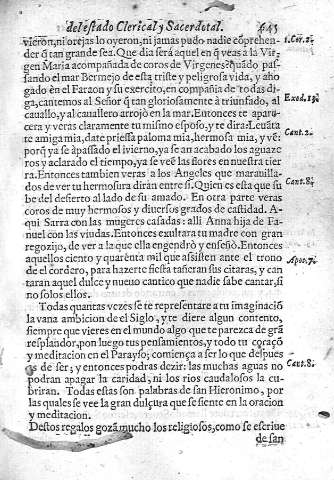 del estado Clerical, y Sacerdotal. 645
vieron, ni orejas lo oyeron, ni jamas pudo nadie cõprehen- 1. Cor. 2.
der q̃ tan grande sea. Que dia serà aquel en q̃ veas a la Vir-
gen Maria acompañada de coros de Virgenes? quãdo pas-
sando el mar Bermejo de esta triste y peligrosa vida, y aho
gado en el Faraon y su exercito, en compañia de todas di-
ga, cantemos al Señor q̃ tan gloriosamente à triunfado, al Exod. 15.
cauallo, y al cauallero arrojò en la mar. Entonces te apare-
cera y veras claramente tu mismo esposo, y te dira: Leuãta
te amiga mia, date priessa paloma mia, hermosa mia, y ve: Cant. 2.
porq̃ ya se apassado el ivierno, ya se an acabado los aguaze
ros y aclarado el tiempo, ya se veẽ las flores en nuestra tie
rra. Entonces tambien veras a los Angeles que marauilla-
dos de ver tu hermosura diràn entre si. Quien es esta que su Cant. 8.
be del desierto al lado de su amado. En otra parte veras
coros de muy hermosos y diuersos grados de castidad. A-
qui Sarra con las mugeres casadas: alli Anna hija de Fa-
nuel con las viudas. Entonces exultara tu madre con gran
regozijo, de ver a la que ella engendrò y enseñò. Entonces
aquellos ciento y quarenta mil que assisten ante el trono Apoc. 7.
de el cordero, para hazerte fiesta tañeran sus citaras, y can
taran aquel dulce y nueuo cantico que nadie sabe cantar, si
no solos ellos.
Todas quantas vezes se te representare a tu imaginaciõ
la vana ambicion de el Siglo, y te diere algun contento,
siempre que vieres en el mundo algo que te parezca de grã
resplandor, pon luego tus pensamientos, y todo tu coraçõ
y meditacion en el Parayso; comiença a ser lo que despues
as de ser; y entonces podras dezir: las muchas aguas no Cant. 8.
podran apagar la caridad, ni los rios caudalosos la cu-
briran. Todas estas son palabras de san Hieronimo, por
las quales se vee la gran dulçura que se siente en la oracion
y meditacion.
Destos regalos gozã mucho los religiosos, como se escriue
de san